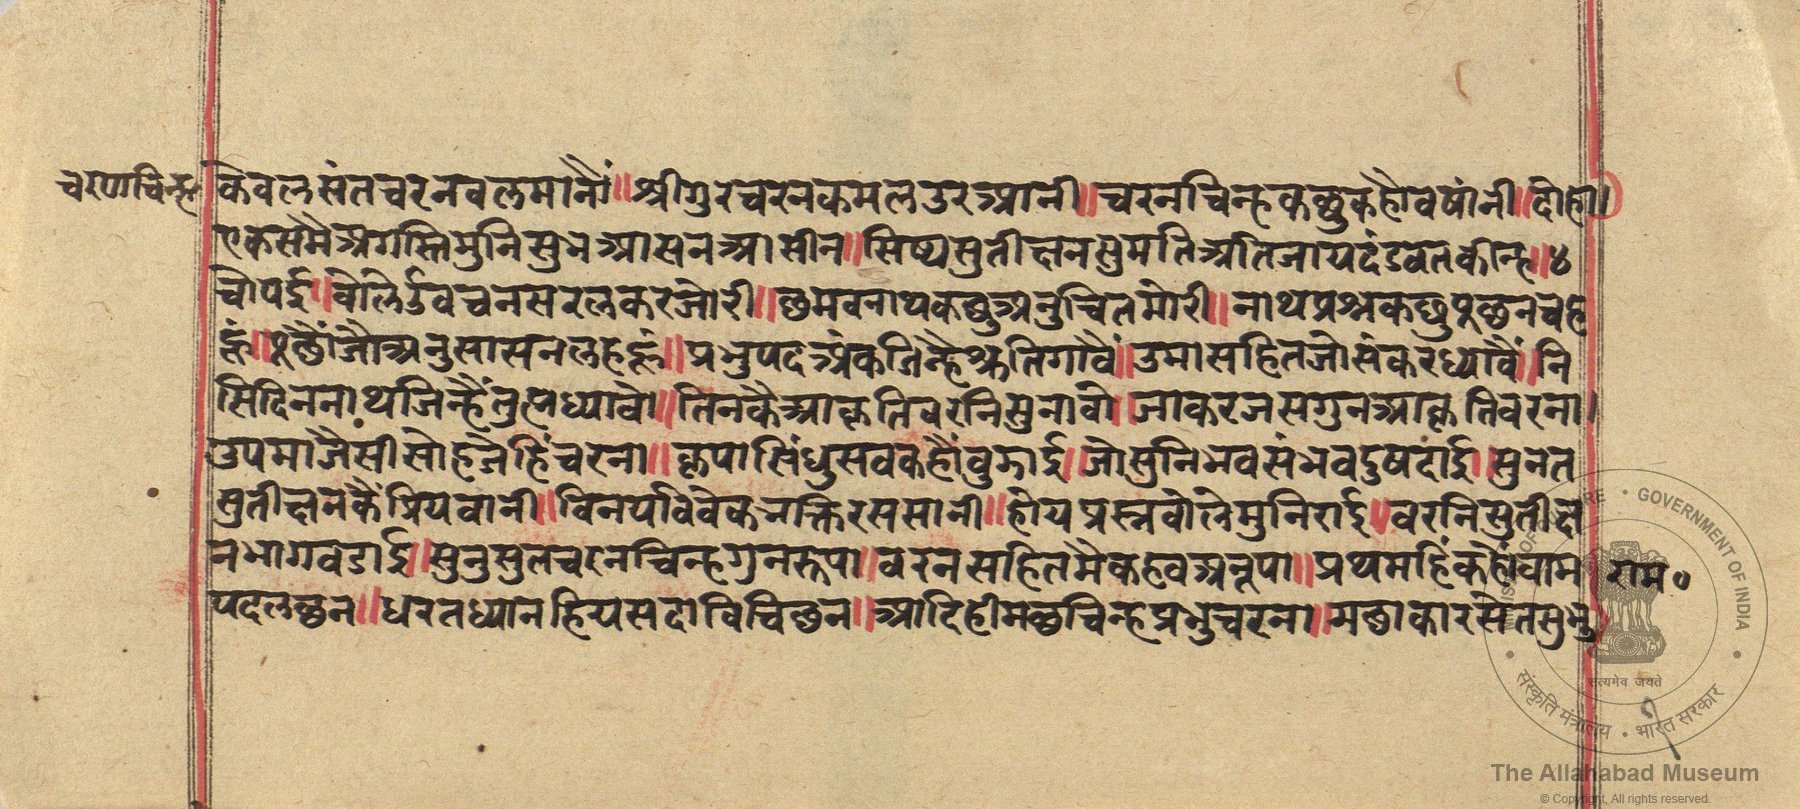 चरणचिन्ह
केवल संत चरन बल मानौं॥ श्रीगुर चरन कमल उर आनी॥ चरन चिन्ह कछुक हौ वषांनी॥ दोहा।
एक समै अगस्ति मुनि सुभ आसन आसीन॥ सिष्य सुतीक्षन सुमति अति जाय दंडवत कीन्ह॥४
चौपई॥ बोलेउ वचन सरल कर जोरी॥ छमव नाथ कछु अनुचित मोरी॥ नाथ प्रश्न कछु पूछन चह
हूं॥ पूछौं जौ अनुसासन लहहूं॥ प्रभु पद अंक जिन्है श्रुति गावैं॥ उमा सहित जो संकर ध्यावैं॥ नि
सि दिन नाथ जिन्हैं तुम ध्यावो॥ तिनकै आकृति वरनि सुनावो॥ जाकर जस गुन आकृति वरना।
उपमा जैसी सोह जेहिं चरना॥ कृपासिंधु सव कहौं वुझाई॥ जो सुनि भव संभव दुष दाई॥ सुनत
सुतीक्षन कै प्रिय वानी॥ विनय विवेक भक्ति रस सानी॥ होय प्रस्न वोले मुनिराई॥ वरनि सुतीक्ष
न भाग वडाई॥ सुनु सुलच्छने चिन्ह गुन रूपा॥ वरन सहित मै कहव अनूपा॥ प्रथमहिं कहौं वाम
राम॰
पद लछन॥ धरत ध्यान हिय सदा विचिछन॥ आदिही मछ चिन्ह प्रभु चरना॥ मछाकार सेत सुभ
१
GOVERNMENT OF INDIA
सत्यमेव जयते
संस्कृति मंत्रालय • भारत सरकार
The Allahabad Museum
© Copyright, All rights reserved.